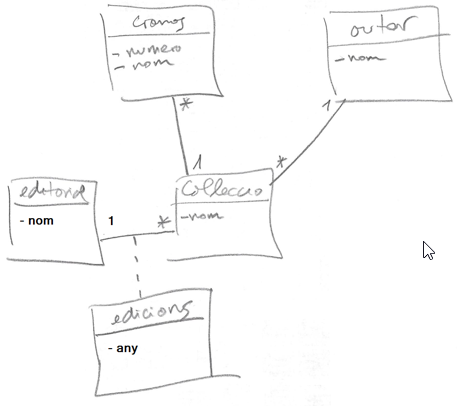 cromos
- numero
- nom
autor
- nom
*
1
1
*
editorial
- nom
1
*
Colleccio
- nom
edicions
- any